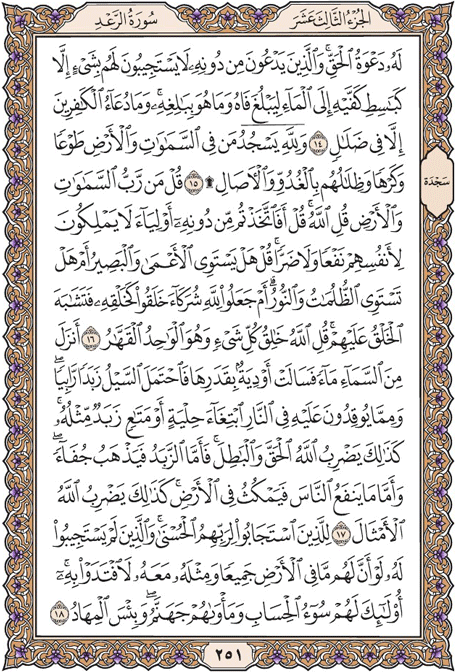 سُورَةُ الرَّعْدِ
الجُزْءُ الثَّالِثَ عَشَرَ
لَهُۥ دَعْوَةُ ٱلْحَقِّۖ وَٱلَّذِينَ يَدْعُونَ مِن دُونِهِۦ لَا يَسْتَجِيبُونَ لَهُم بِشَىْءٍ إِلَّا
كَبَٰسِطِ كَفَّيْهِ إِلَى ٱلْمَآءِ لِيَبْلُغَ فَاهُ وَمَا هُوَ بِبَٰلِغِهِۦۚ وَمَا دُعَآءُ ٱلْكَٰفِرِينَ
إِلَّا فِى ضَلَٰلٍ ١٤ وَلِلَّهِ يَسْجُدُ مَن فِى ٱلسَّمَٰوَٰتِ وَٱلْأَرْضِ طَوْعًا
وَكَرْهًا وَظِلَٰلُهُم بِٱلْغُدُوِّ وَٱلْءَاصَالِ ۩ ١٥ قُلْ مَن رَّبُّ ٱلسَّمَٰوَٰتِ
سَجْدَة
وَٱلْأَرْضِ قُلِ ٱللَّهُۚ قُلْ أَفَٱتَّخَذْتُم مِّن دُونِهِۦٓ أَوْلِيَآءَ لَا يَمْلِكُونَ
لِأَنفُسِهِمْ نَفْعًا وَلَا ضَرًّاۚ قُلْ هَلْ يَسْتَوِى ٱلْأَعْمَىٰ وَٱلْبَصِيرُ أَمْ هَلْ
تَسْتَوِى ٱلظُّلُمَٰتُ وَٱلنُّورُۗ أَمْ جَعَلُوا۟ لِلَّهِ شُرَكَآءَ خَلَقُوا۟ كَخَلْقِهِۦ فَتَشَٰبَهَ
ٱلْخَلْقُ عَلَيْهِمْۚ قُلِ ٱللَّهُ خَٰلِقُ كُلِّ شَىْءٍ وَهُوَ ٱلْوَٰحِدُ ٱلْقَهَّٰرُ ١٦ أَنزَلَ
مِنَ ٱلسَّمَآءِ مَآءً فَسَالَتْ أَوْدِيَةٌۢ بِقَدَرِهَا فَٱحْتَمَلَ ٱلسَّيْلُ زَبَدًا رَّابِيًاۖ
وَمِمَّا يُوقِدُونَ عَلَيْهِ فِى ٱلنَّارِ ٱبْتِغَآءَ حِلْيَةٍ أَوْ مَتَٰعٍ زَبَدٌ مِّثْلُهُۥۚ
كَذَٰلِكَ يَضْرِبُ ٱللَّهُ ٱلْحَقَّ وَٱلْبَٰطِلَۚ فَأَمَّا ٱلزَّبَدُ فَيَذْهَبُ جُفَآءًۖ
وَأَمَّا مَا يَنفَعُ ٱلنَّاسَ فَيَمْكُثُ فِى ٱلْأَرْضِۚ كَذَٰلِكَ يَضْرِبُ ٱللَّهُ
ٱلْأَمْثَالَ ١٧ لِلَّذِينَ ٱسْتَجَابُوا۟ لِرَبِّهِمُ ٱلْحُسْنَىٰۚ وَٱلَّذِينَ لَمْ يَسْتَجِيبُوا۟
لَهُۥ لَوْ أَنَّ لَهُم مَّا فِى ٱلْأَرْضِ جَمِيعًا وَمِثْلَهُۥ مَعَهُۥ لَٱفْتَدَوْا۟ بِهِۦٓۚ
أُو۟لَٰٓئِكَ لَهُمْ سُوٓءُ ٱلْحِسَابِ وَمَأْوَىٰهُمْ جَهَنَّمُۖ وَبِئْسَ ٱلْمِهَادُ ١٨
٢٥١